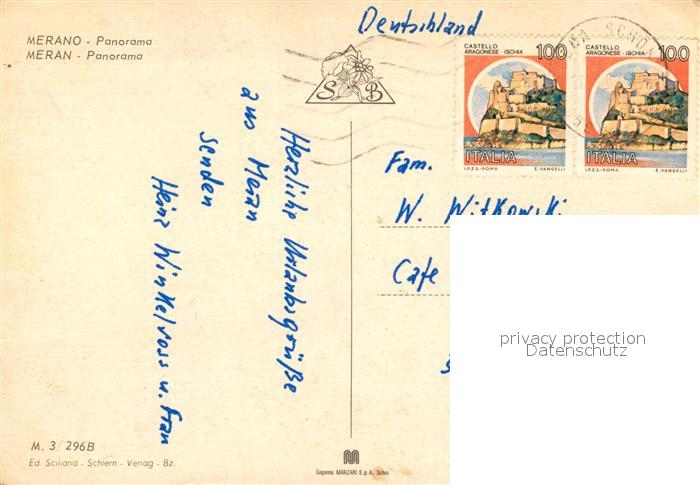 MERANO - Panorama
MERAN - Panorama
Deutschland
CASTELLO
ARAGONESE - ISCHIA 100
ITALIA
I.P.Z.S. - ROMA E. VANGELLI
CASTELLO
ARAGONESE - ISCHIA 100
ITALIA
I.P.Z.S. - ROMA E. VANGELLI
S B
Herzliche Urlaubsgrüße
aus Meran
senden
Heinz Winkelvoss u. Frau
Fam.
W. Witkowski
Cafe
privacy protection
Datenschutz
M. 3/296B
Ed. Sciliana - Schlern - Verlag - Bz.
M
Sagoma MARZARI S.p.A. Schio